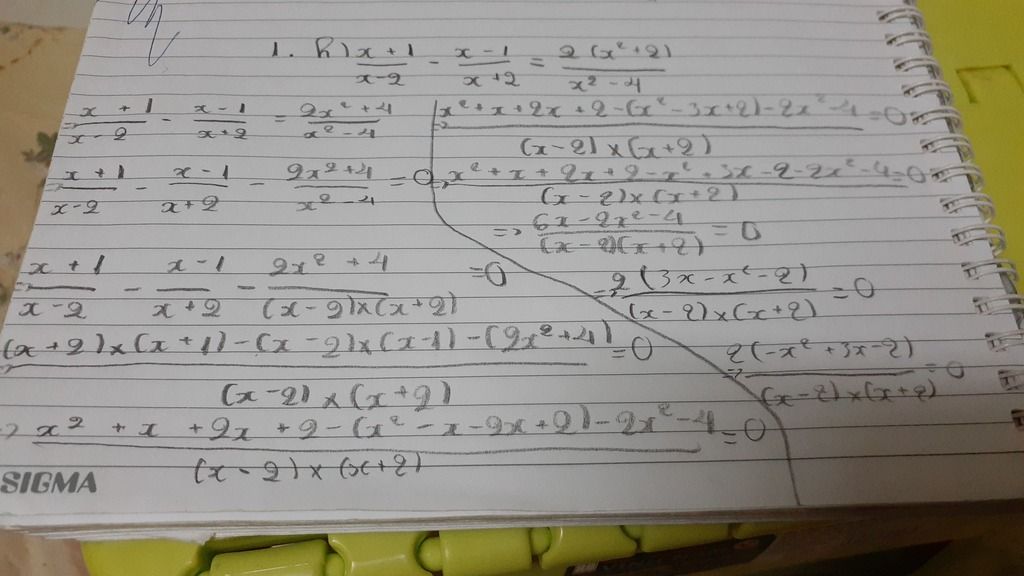 1. h) x + 1/x-2 - x-1/x+2 = 2(x²+2)/x²-4
=> x + 1/x-2 - x-1/x+2 = 2x²+4/x²-4
=> x+1/x-2 - x-1/x+2 - 2x²+4/x²-4 = 0
=> x+1/x-2 - x-1/x+2 - 2x²+4/(x-2)x(x+2) = 0
(x+2)x(x+1)-(x-2)x(x-1)-(2x²+4)/(x-2)x(x+2) = 0
=> x² + x + 2x + 2-(x²-x-2x+2)-2x²-4/(x-2)x(x+2) = 0
=> x²+x+2x+2-(x²-3x+2)-2x²-4/(x-2)x(x+2) = 0
=> x²+x+2x+2-x²+3x-2-2x²-4/(x-2)x(x+2) = 0
=> 6x-2x²-4/(x-2)(x+2) = 0
=> 2(3x-x²-2)/(x-2)x(x+2) = 0
=> 2(-x²+3x-2)/(x-2)x(x+2) = 0
SIGMA